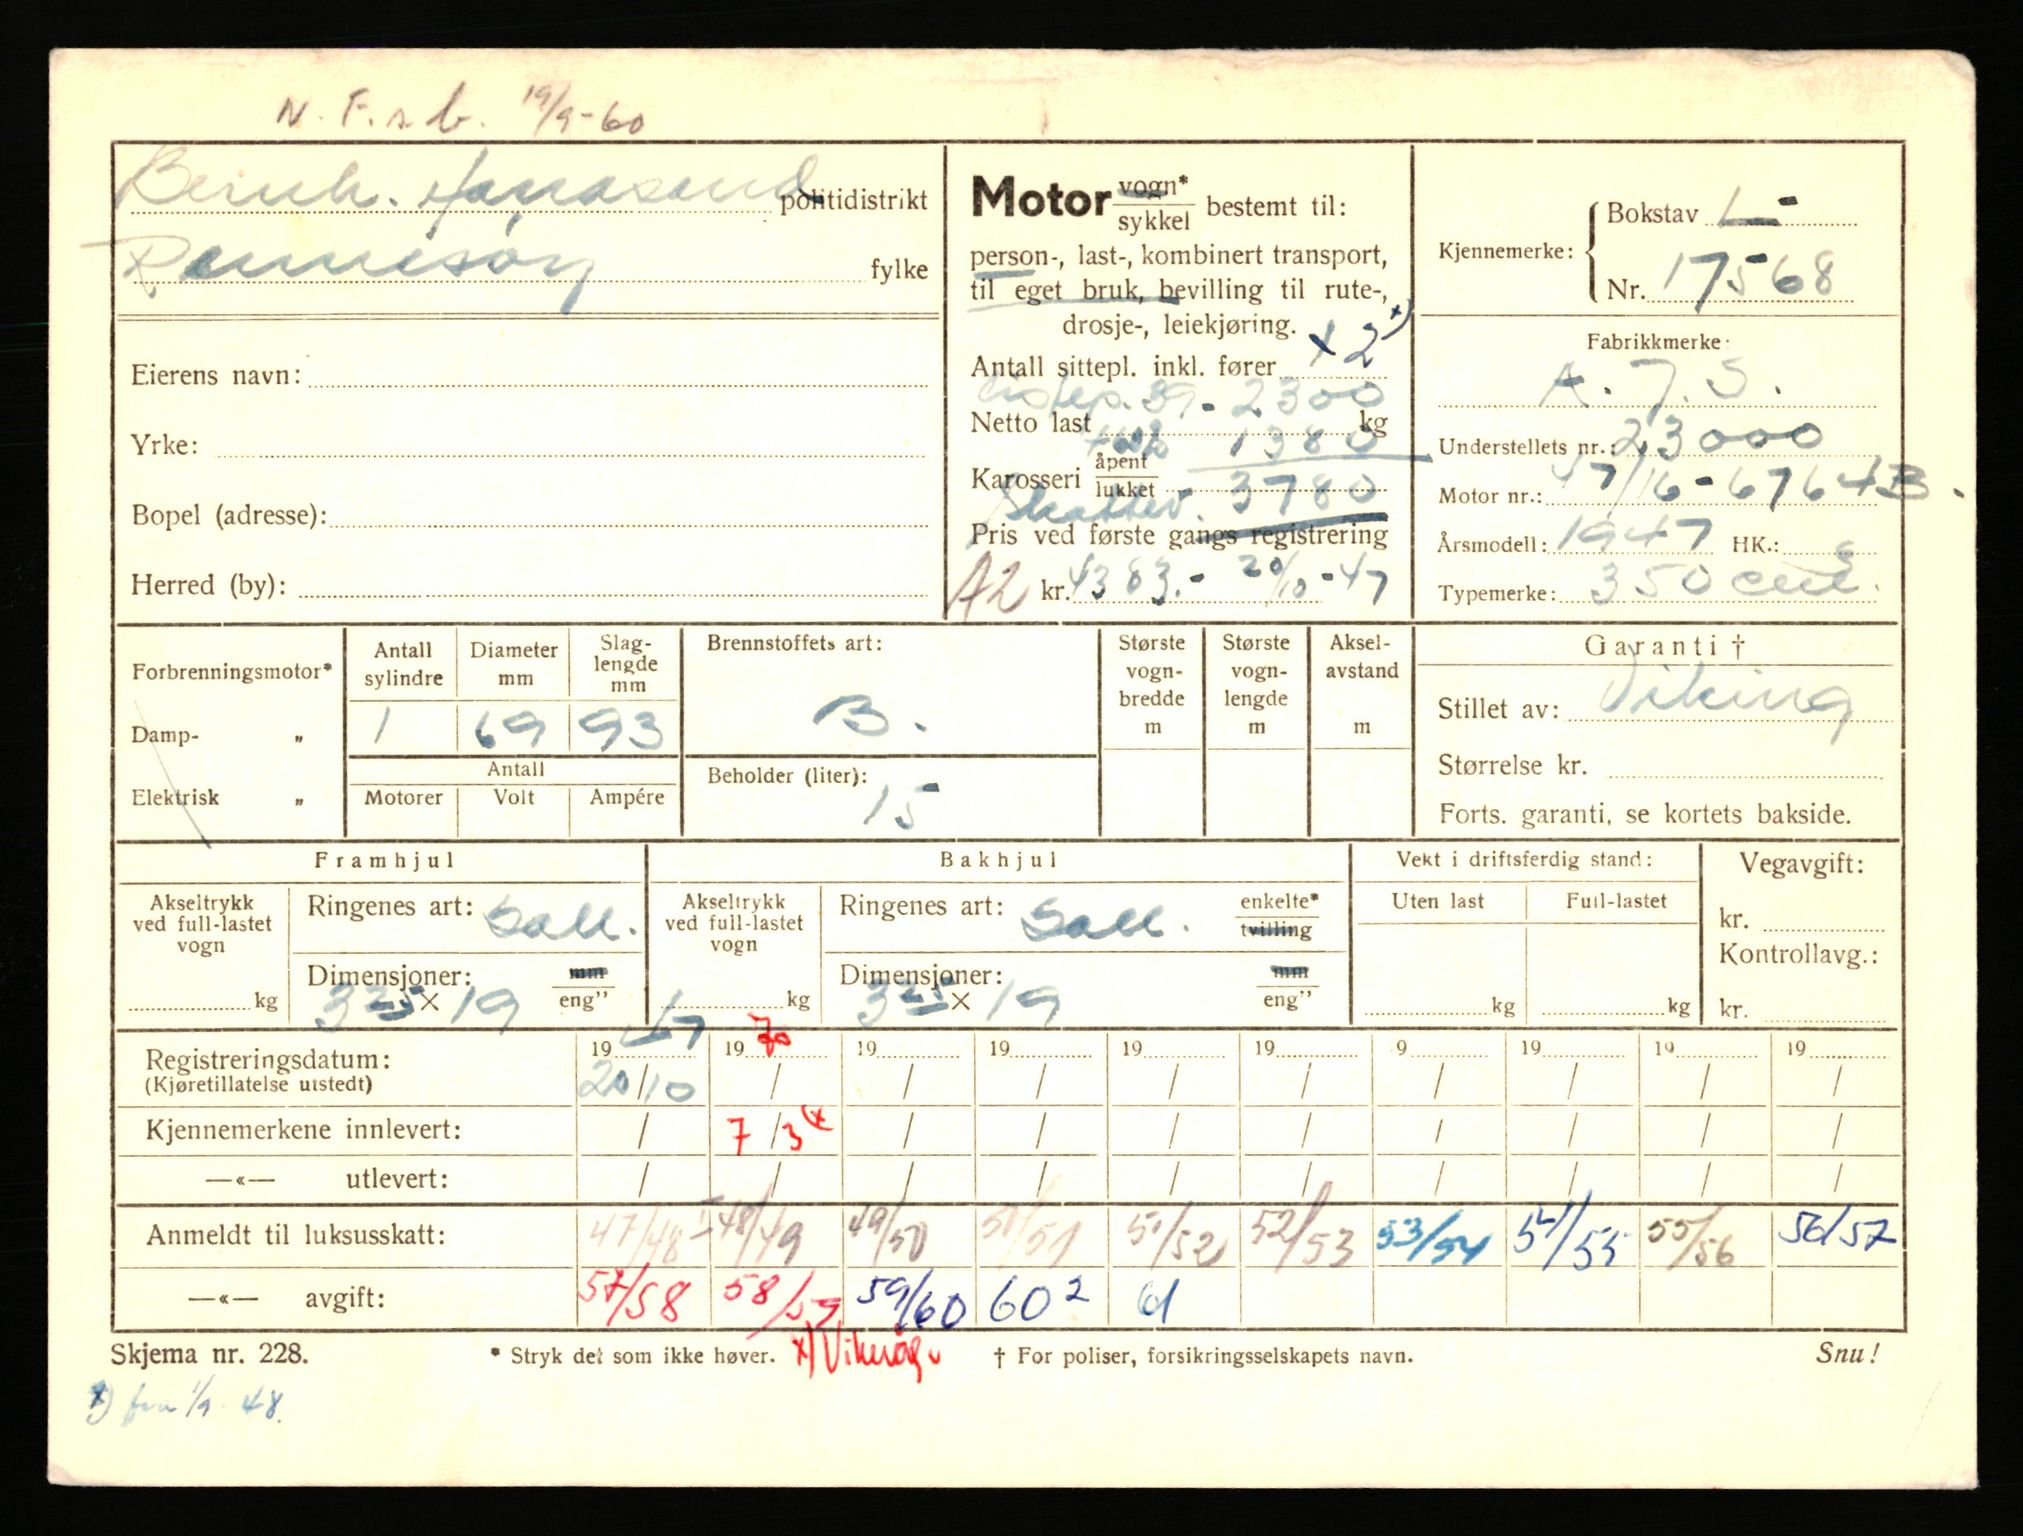 N. F. s. b. 19/9-60
Bernh. politidistrikt
Rennesøy fylke
Eierens navn:
Yrke:
Bopel (adresse):
Herred (by):
Motor vogn* / sykkel bestemt til:
person-, last-, kombinert transport,
til eget bruk, bevilling til rute-,
drosje-, leiekjøring.
Antall sittepl. inkl. fører + 2 x)
39 - 2300
Netto last kg
1380
Karosseri åpent / lukket
Skattev. 3780
Pris ved første gangs registrering
A2 kr. 4383.- 20/10-47
Kjennemerke: Bokstav L-
Nr. 17568
Fabrikkmerke:
A. J. S.
Understellets nr.: 23000
Motor nr.: 47/16-6764B.
Årsmodell: 1947 HK.:
Typemerke: 350 cm3.
Forbrenningsmotor*
Damp- „
Elektrisk „
Antall sylindre Diameter mm Slag-lengde mm
1 69 93
Antall
Motorer Volt Ampére
Brennstoffets art:
B.
Beholder (liter):
15
Største vogn-bredde m
Største vogn-lengde m
Aksel-avstand m
Garanti †
Stillet av: Viking
Størrelse kr.
Forts. garanti, se kortets bakside.
Framhjul
Akseltrykk ved full-lastet vogn
kg
Ringenes art: Ball.
Dimensjoner: mm / eng”
3 25 x 19
Bakhjul
Akseltrykk ved full-lastet vogn
kg
Ringenes art: Ball. enkelte* / tvilling
Dimensjoner: mm / eng”
3 25 x 19
Vekt i driftsferdig stand:
Uten last Full-lastet
kg kg
Vegavgift:
kr.
Kontrollavg.:
kr.
Registreringsdatum: 19 47 19 70 19 19 19 19 9 19 19 19
(Kjøretillatelse utstedt) 20/10 / / / / / / / / /
Kjennemerkene innlevert: / 7/3 x / / / / / / / /
—«— utlevert: / / / / / / / / / /
Anmeldt til luksusskatt: 47/48 48/49 49/50 50/51 51/52 52/53 53/54 54/55 55/56 56/57
—«— avgift: 57/58 58/59 59/60 60² 61
Skjema nr. 228.
* Stryk det som ikke høver.
x)
† For poliser, forsikringsselskapets navn.
Snu!
x) fra 1/9 48.